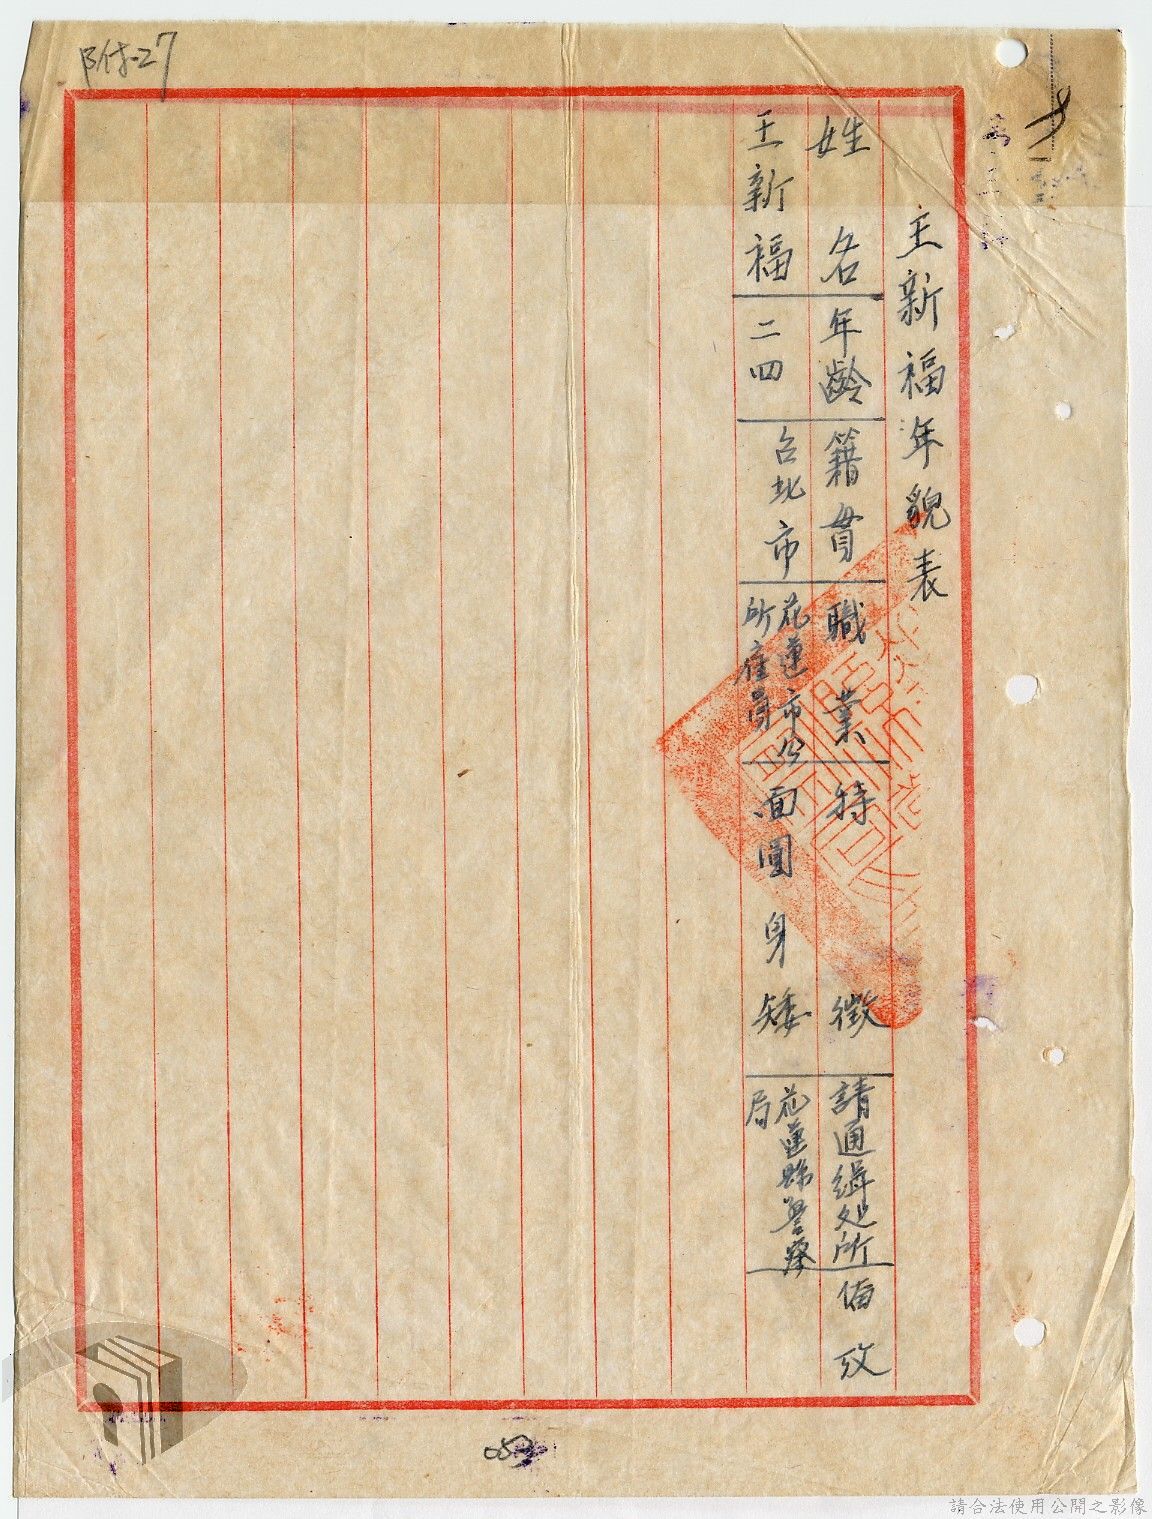 附-27
王新福年貌表
姓名
年齡
籍貫
職業
特徵
請通緝処所
俻攷
王新福
二四
台北市
花蓮市公
所雇員
面圓身矮
花蓮縣警察
局
請合法使用公開之影像